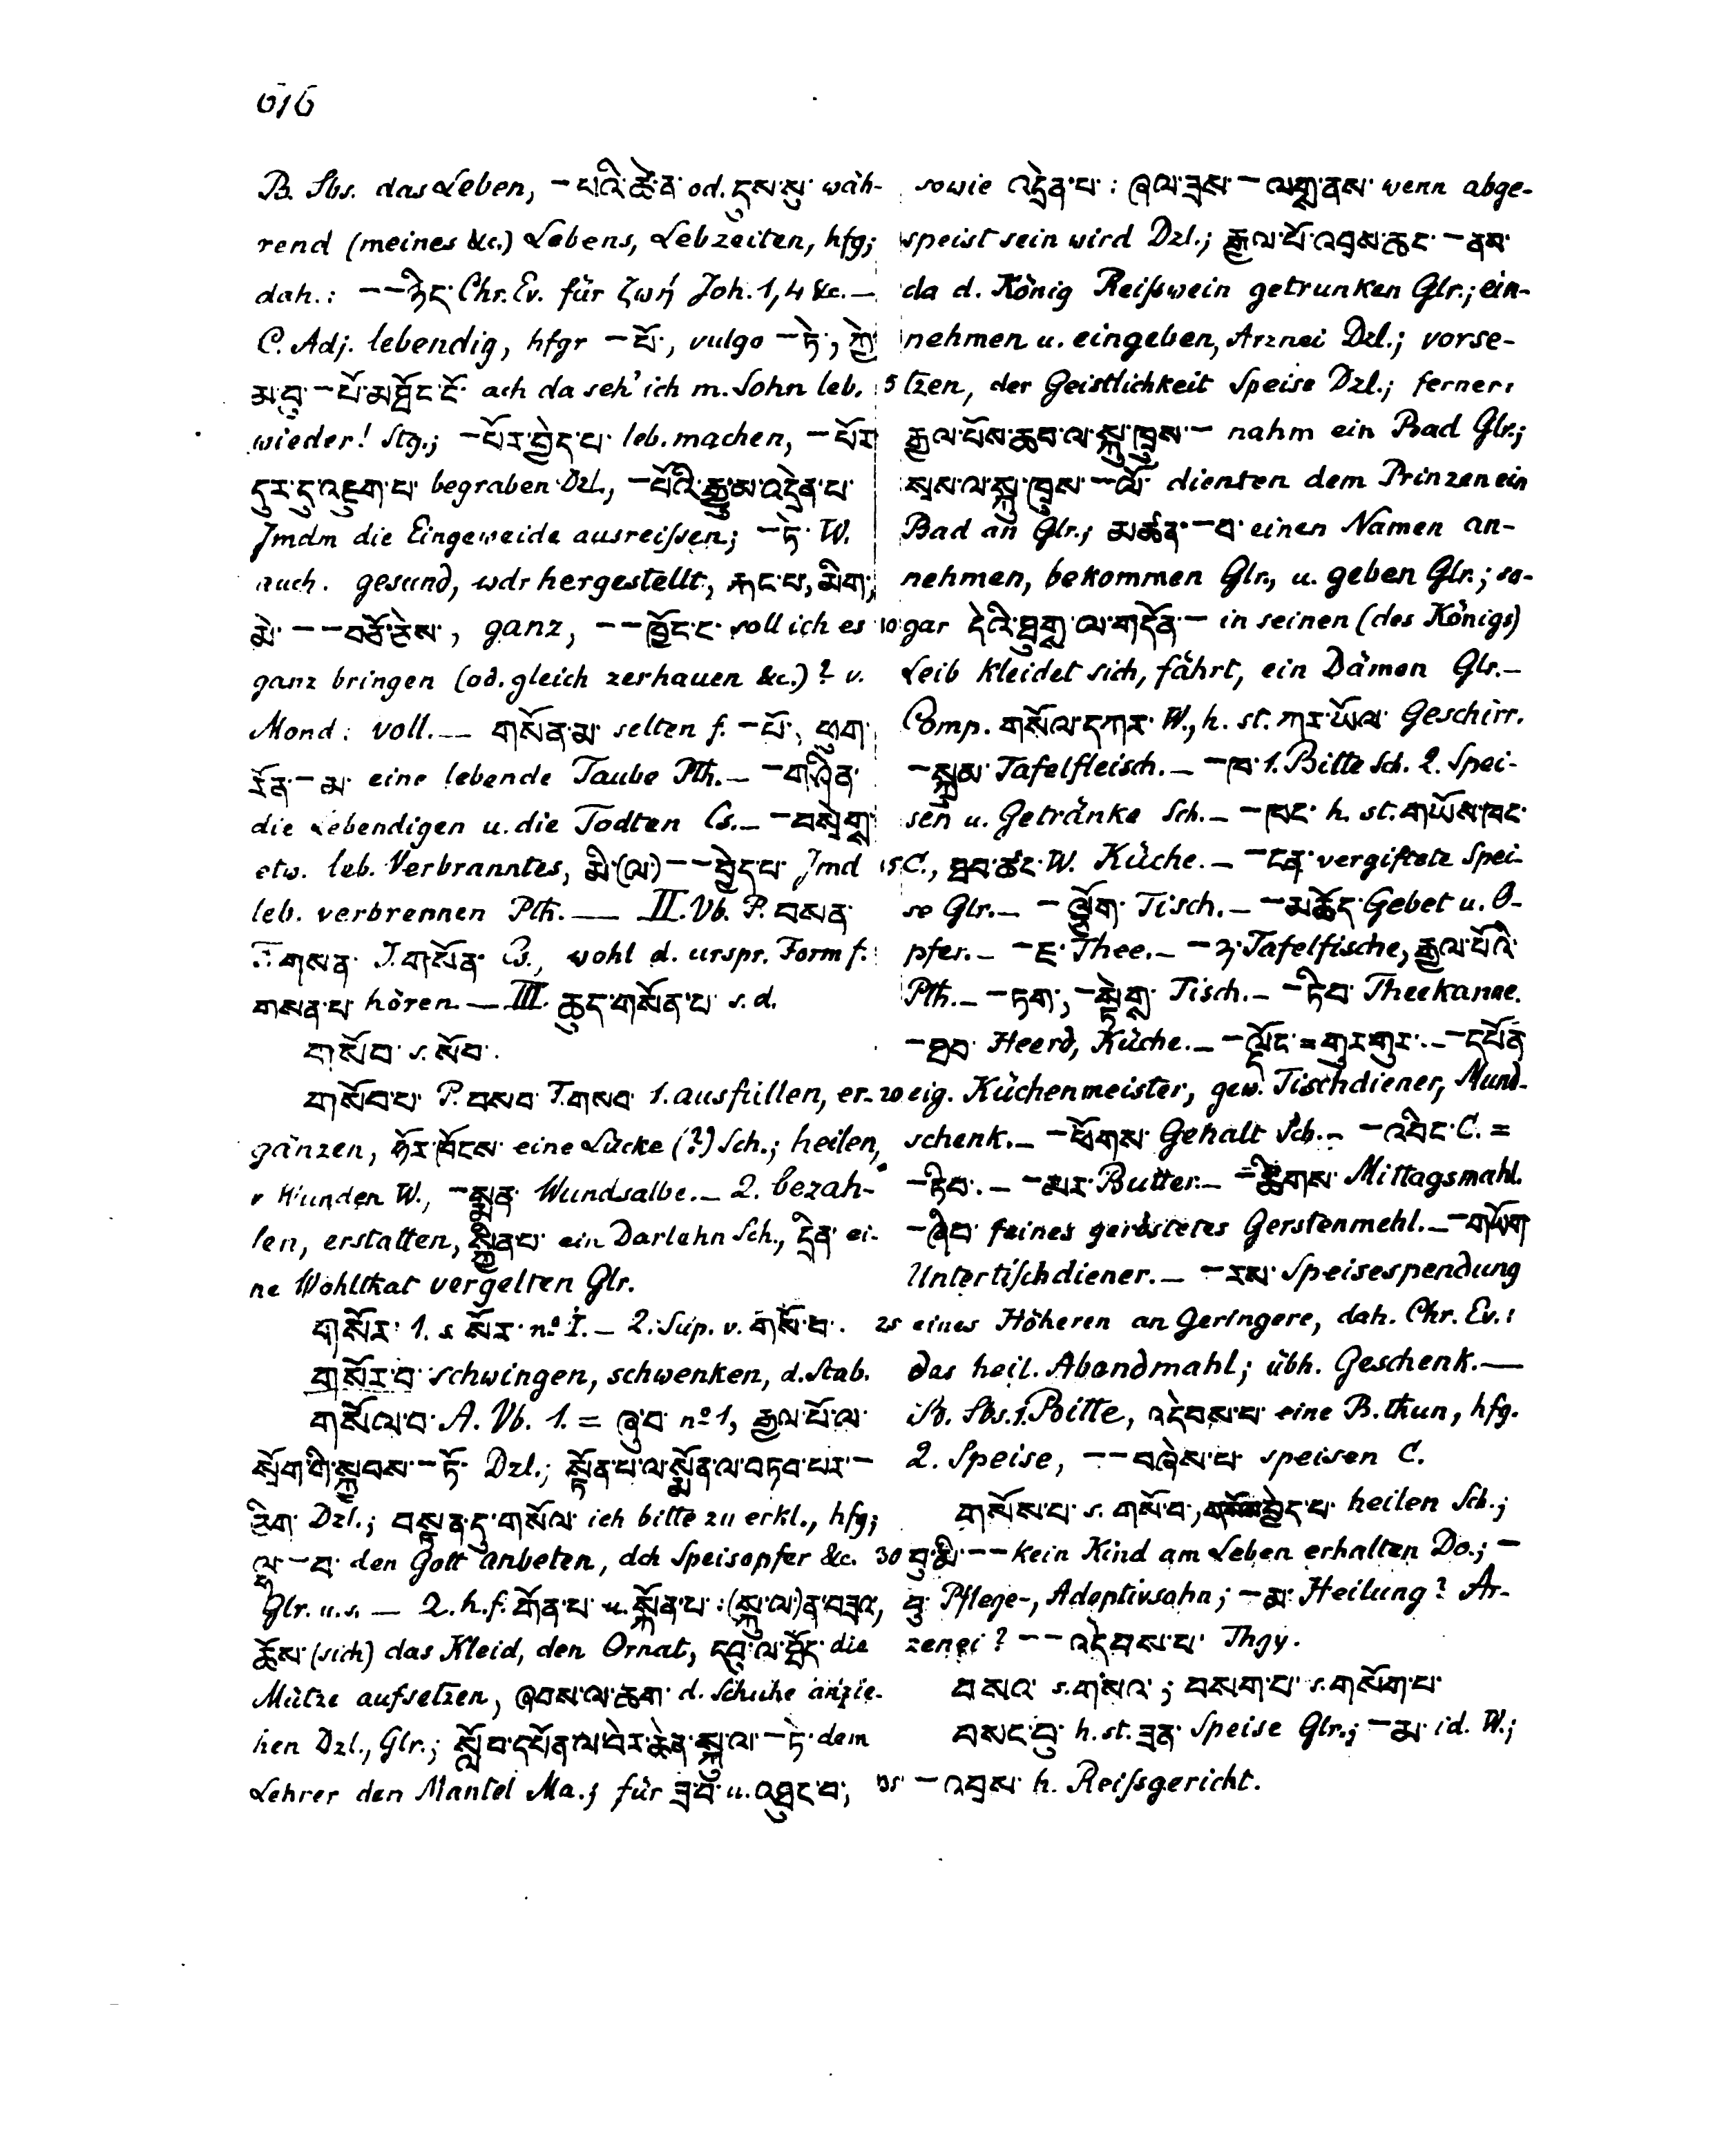 616
B. Sbs. das Leben, – པའི་ཚེ་ན་ od. དུས་སུ་ wäh-
rend (meines &c.) Lebens, Lebzeiten, hfg;
dah.: – – ཉིད་ Chr. Ev. für ζωή Joh. 1,4 &c. —
C. Adj. lebendig, hfgr – པོ་, vulgo – ཏེ་, ཀྱེ་
མ་བུ་ – པོ་མཐོང་ངོ་ ach da seh' ich m. Sohn leb.
wieder! Stg.; – པོར་བྱེད་པ་ leb. machen, – པོར་
དུར་དུ་འཇུག་པ་ begraben Dzl., – པོའི་རྒྱུ་མ་འདྲེན་པ་
Jmdm die Eingeweide ausreissen; – ཏེ་ W.
auch. gesund, wdr hergestellt, རྐང་པ, མིག,
མེ་ – – བཟོ་ཤེས་, ganz, – – ཁྱོང་ང་ soll ich es
ganz bringen (od. gleich zerhauen &c.)? v.
Mond: voll. — གསོན་མ་ selten f. – པོ་, ཕུག་
རོན་ – མ་ eine lebende Taube Pth. — – གཤིན་
die Lebendigen u. die Todten Cs. — – བསྲེགས་
etw. leb. Verbranntes, མི་(ལ) – – བྱེད་པ་ Jmd
leb. verbrennen Pth. — II. Vb. P. བསན་
F. གསན་ I. གསོན་ Cs., wohl d. urspr. Form f.
གསན་པ་ hören. — III. ཆུད་གསོན་པ་ s. d.
གསོབ་ s. སོབ་.
གསོབ་པ་ P. བསབ་ F. གསབ་ 1. ausfüllen, er-
gänzen, ཧོར་ཁོངས་ eine Lücke (?) Sch.; heilen,
v Wunden W., – སྨན་ Wundsalbe. — 2. bezah-
len, erstatten, སྐྱིན་པ་ ein Darlehn Sch., དྲིན་ ei-
ne Wohlthat vergelten Glr.
གསོར་ 1. s. སོར་ nº I. — 2. Sup. v. གསོ་བ་.
གསོར་བ་ schwingen, schwenken, d. Stab.
གསོལ་བ་ A. Vb. 1. = ཞུ་བ་ nº 1, རྒྱལ་པོ་ལ་
སྲོག་གི་སྐྱབས་ – ཏོ་ Dzl.; སྟོན་པ་ལ་སྨོན་ལ་བཏབ་པར་ –
ཞིག་ Dzl.; བསྟན་དུ་གསོལ་ ich bitte zu erkl., hfg;
ལྷ་ – བ་ den Gott anbeten, dch Speisopfer &c.
Glr. u. s. — 2. h. f. གོན་པ་ u. སྐོན་པ་ : (སྐུ་ལ)ན་བཟའ,
ཆོས་ (sich) das Kleid, den Ornat, དབུ་ལ་ཐོད་ die
Mütze aufsetzen, ཞབས་ལ་ཆག་ d. Schuhe anzie-
hen Dzl., Glr.; སློབ་དཔོན་ལ་བེར་ཆེན་སྐུ་ལ་ – ཏེ་ dem
Lehrer den Mantel Ma.; für ཟ་བོ་ u. འཐུང་བ་,
sowie འདྲེན་པ་ : ཞལ་ཟས་ – ལགས་ནས་ wenn abge-
speist sein wird Dzl.; རྒྱལ་པོ་འབྲས་ཆང་ – ནས་
da d. König Reißwein getrunken Glr.; ein-
nehmen u. eingeben, Arznei Dzl.; vorse-
5 tzen, der Geistlichkeit Speise Dzl.; ferner:
རྒྱལ་པོས་ཆབ་ལ་སྐུ་ཁྲུས་ – nahm ein Bad Glr.;
སྲས་ལ་སྐུ་ཁྲུས་ – ལོ་ dienten dem Prinzen ein
Bad an Glr.; མཚན་ – བ་ einen Namen an-
nehmen, bekommen Glr., u. geben Glr.; so-
10 gar དེའི་ཐུགས་ལ་གདོན་ – in seinen (des Königs)
Leib kleidet sich, fährt, ein Dämon Glr. —
Comp. གསོལ་དཀར་ W., h. st. ཀར་ཡོལ་ Geschirr.
– སྐམ་ Tafelfleisch. — – ཁ་ 1. Bitte Sch. 2. Spei-
sen u. Getränke Sch. — – ཁང་ h. st. གཡོས་ཁང་
15 C., ཐབ་ཚང་ W. Küche. — – ངན་ vergiftete Spei-
se Glr. — – ལྕོག་ Tisch. — – མཆོད་ Gebet u. O-
pfer. — – ཇ་ Thee. — – ཉ་ Tafelfische, རྒྱལ་པོའི་
Pth. — – ཏག་, – སྟེགས་ Tisch. — – ཏིབ་ Theekanne.
– ཐབ་ Heerd, Küche. — – ལྡོང་ = གུར་གུར་. — – དཔོན་
20 eig. Küchenmeister, gew. Tischdiener, Mund-
schenk. — – ཕོགས་ Gehalt Sch. — – འབིང་ C. =
– ཏིབ་. — – མར་ Butter. — – ཚིགས་ Mittagsmahl.
– ཞིབ་ feines geröstetes Gerstenmehl. — – གཡོག་
Untertischdiener. — – རས་ Speisespendung
25 eines Höheren an Geringere, dah. Chr. Ev.:
das heil. Abendmahl; übh. Geschenk. —
B. Sbs. 1. Bitte, འདེབས་པ་ eine B. thun, hfg.
2. Speise, – – བཞེས་པ་ speisen C.
གསོས་པ་ s. གསོ་བ་, གསོས་བྱེད་པ་ heilen Sch.;
30 བུ་མི་ – – kein Kind am Leben erhalten Do.; –
བུ་ Pflege-, Adoptivsohn; – མ་ Heilung? Ar-
zenei? – – འདེབས་པ་ Thgy.
བསའ་ s. གསའ་; བསག་པ་ s. གསོག་པ་
བསང་བུ་ h. st. ཟན་ Speise Glr.; – མ་ id. W.;
35 – འབྲས་ h. Reißgericht.